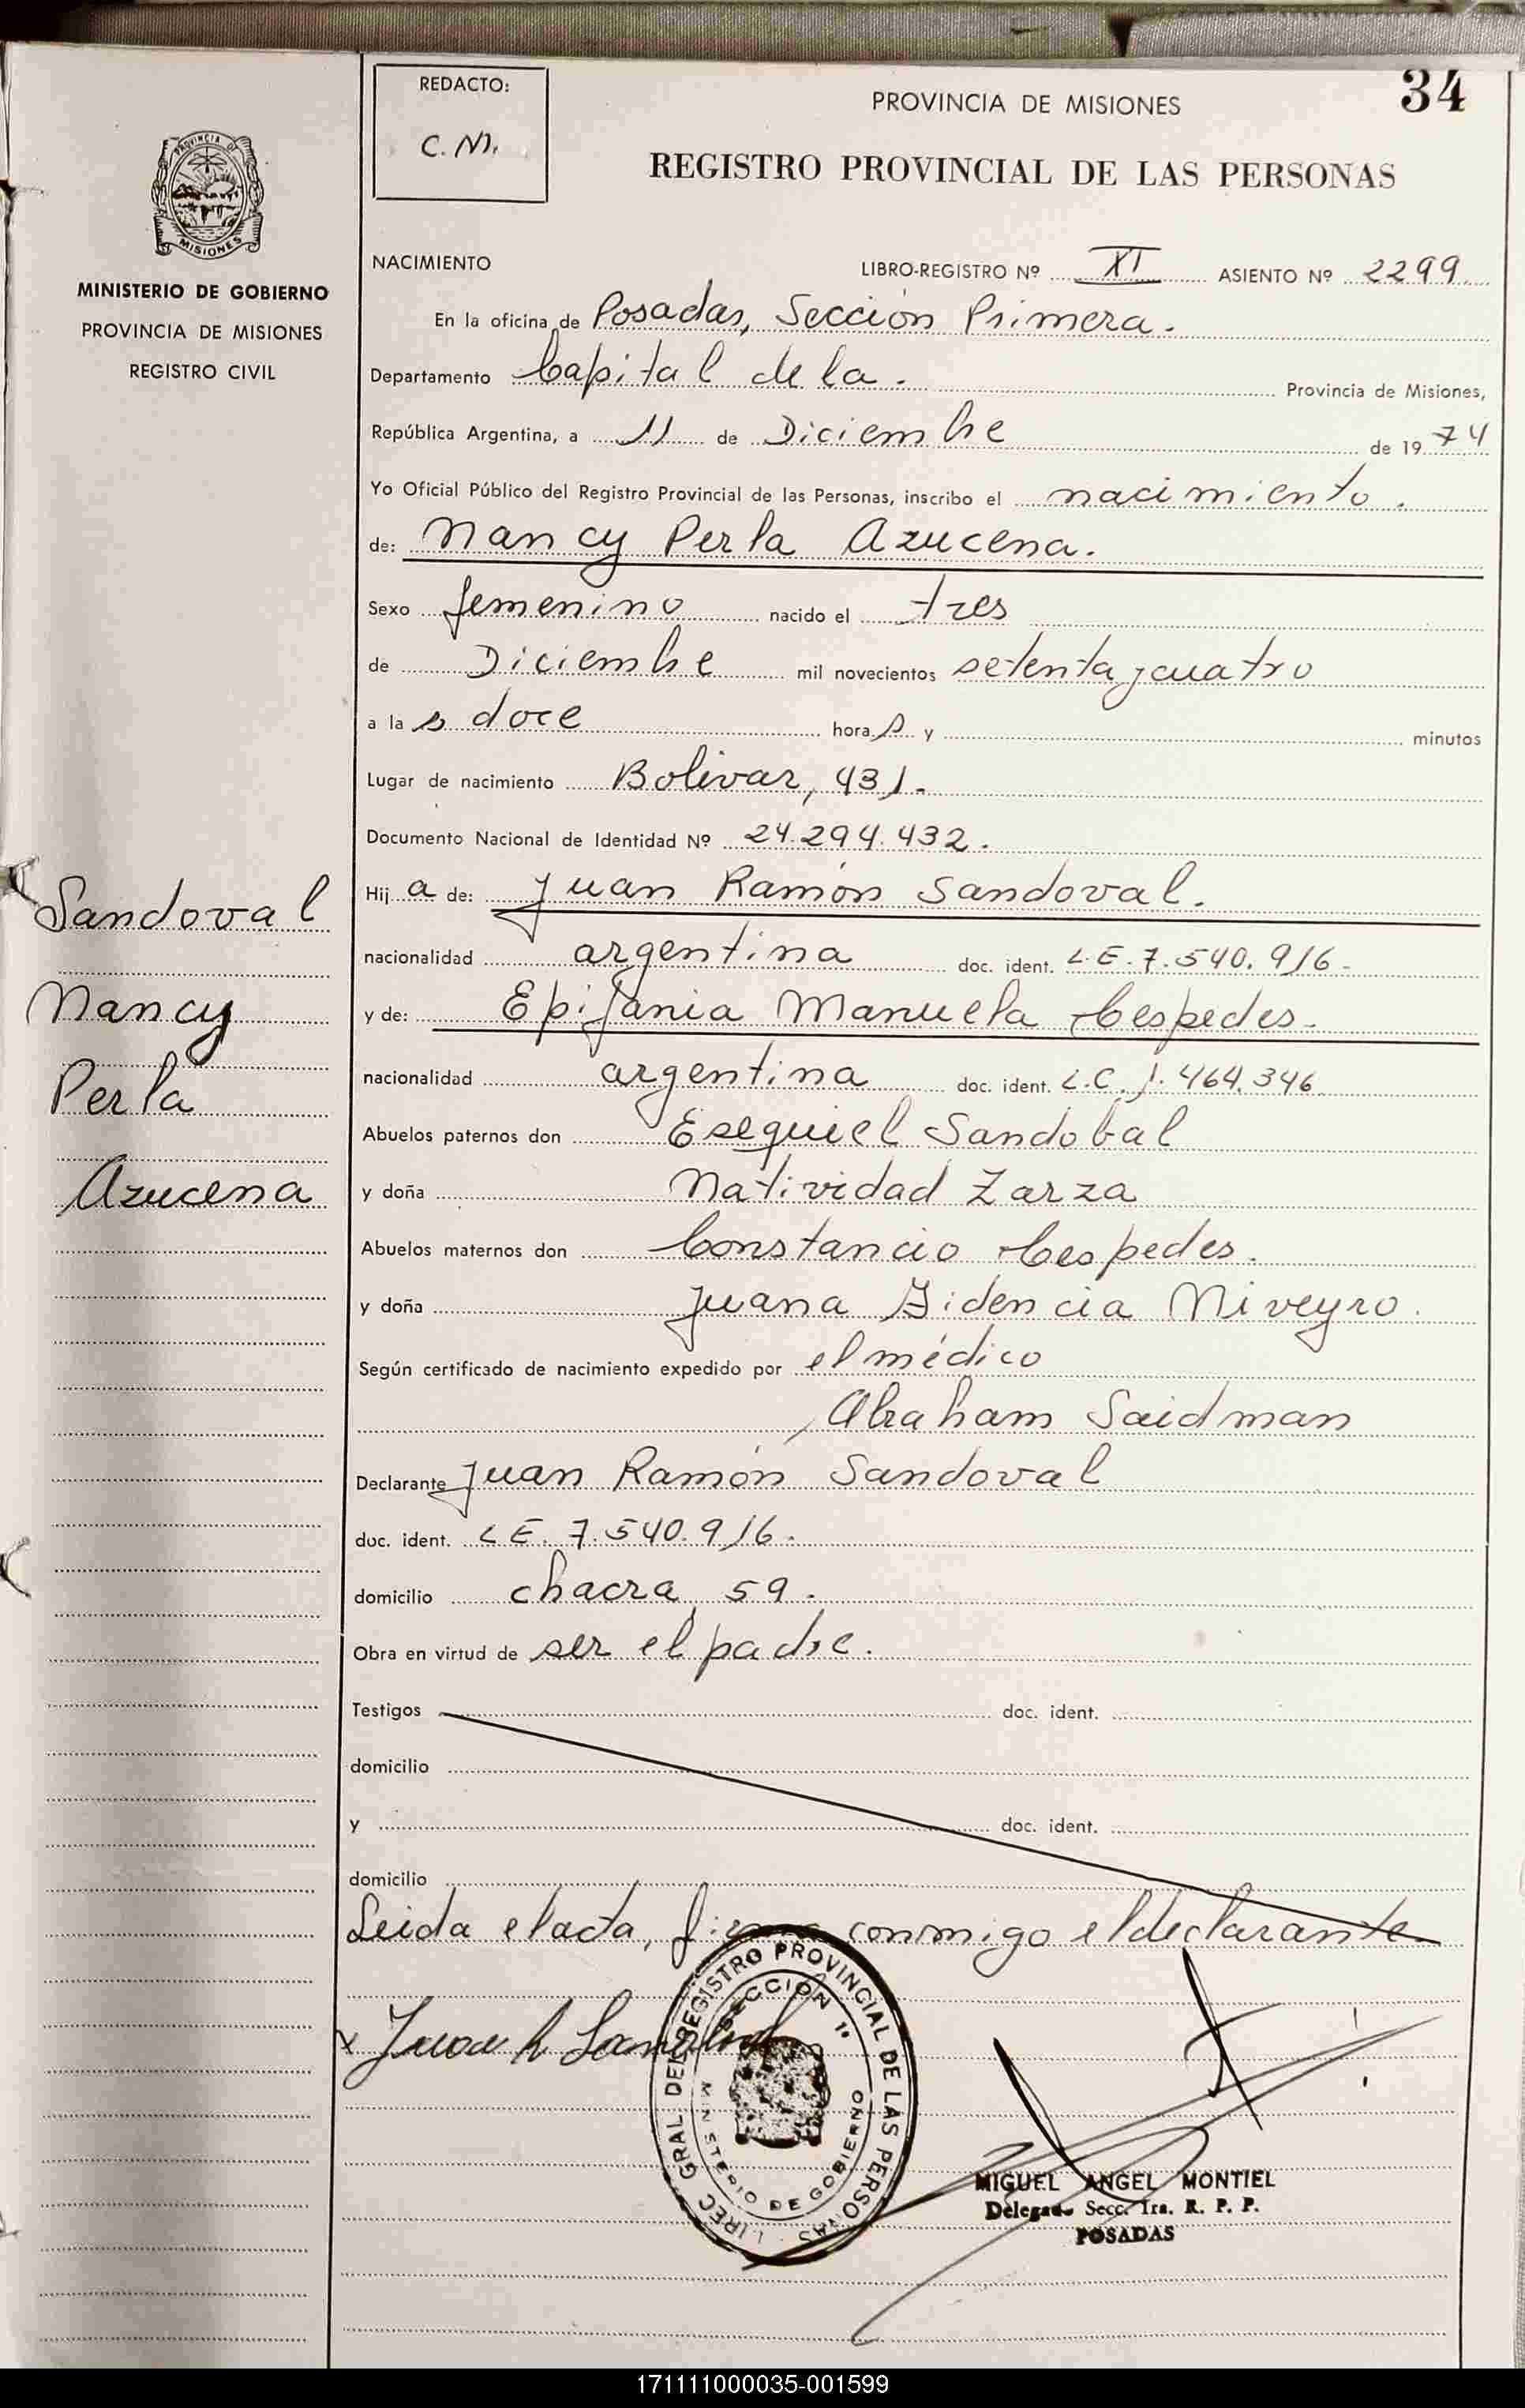 34
REDACTO:
C. M.
PROVINCIA DE MISIONES
REGISTRO PROVINCIAL DE LAS PERSONAS
PROVINCIA DE
MISIONES
MINISTERIO DE GOBIERNO
PROVINCIA DE MISIONES
REGISTRO CIVIL
NACIMIENTO LIBRO-REGISTRO Nº XI ASIENTO Nº 2299
En la oficina de Posadas, Sección Primera.
Departamento Capital de la. Provincia de Misiones,
República Argentina, a 11 de Diciembre de 1974
Yo Oficial Público del Registro Provincial de las Personas, inscribo el nacimiento.
de: Nancy Perla Azucena.
Sexo femenino nacido el tres
de Diciembre mil novecientos setenta y cuatro
a la s doce hora s y minutos
Lugar de nacimiento Bolivar, 431.
Documento Nacional de Identidad Nº 24.294.432.
Hij a de: Juan Ramón Sandoval.
nacionalidad argentina doc. ident. L.E. 7.540.916-
y de: Epifania Manuela Cespedes.
nacionalidad argentina doc. ident. L.C. 1.464.346
Abuelos paternos don Esequiel Sandobal
y doña Natividad Zarza
Abuelos maternos don Constancio Cespedes.
y doña Juana Fidencia Niveyro.
Según certificado de nacimiento expedido por el médico
Abraham Saidman
Declarante Juan Ramón Sandoval
doc. ident. LE. 7.540.916.
domicilio chacra 59.
Obra en virtud de ser el padre.
Testigos doc. ident.
domicilio
y doc. ident.
domicilio
Leida el acta, firma conmigo el declarante
Sandoval
Nancy
Perla
Azucena
x Juan R Sandoval
DIREC. GRAL. DEL REGISTRO PROVINCIAL DE LAS PERSONAS
SECCIÓN 1ª
MINISTERIO DE GOBIERNO
MIGUEL ANGEL MONTIEL
Delegado Secc. 1ra. R. P. P.
POSADAS
171111000035-001599